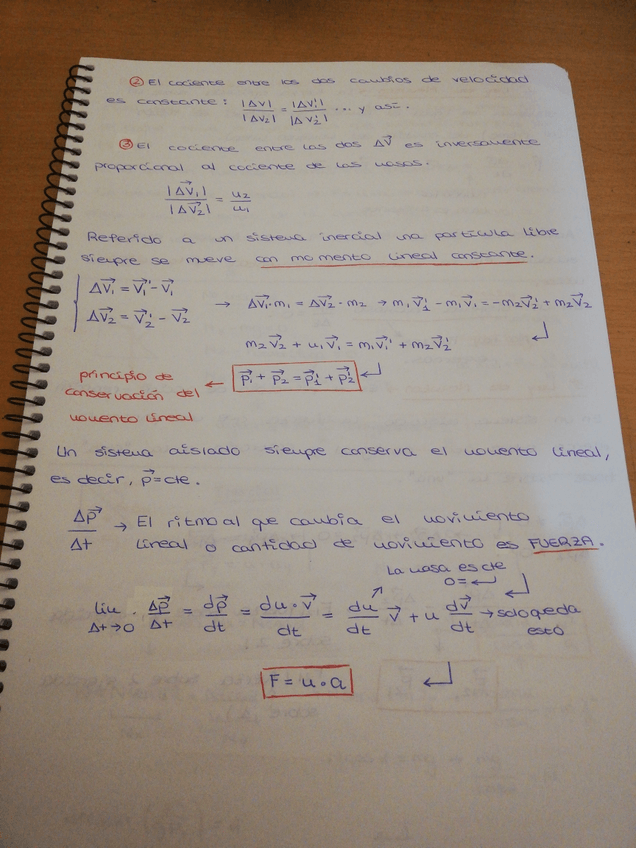 ② El cociente entre los dos cambios de velocidad
es constante: |ΔV₁| / |ΔV₂| = |ΔV₁'| / |ΔV₂'| ... y así.
③ El cociente entre las dos ΔV⃗ es inversamente
proporcional al cociente de las masas.
|ΔV⃗₁| / |ΔV⃗₂| = m₂ / m₁
Referido a un sistema inercial una partícula libre
siempre se mueve con momento lineal constante.
ΔV⃗₁ = V⃗₁' - V⃗₁
ΔV⃗₂ = V⃗₂' - V⃗₂
→ ΔV⃗₁·m₁ = ΔV⃗₂·m₂ → m₁V⃗₁' - m₁V⃗₁ = -m₂V⃗₂' + m₂V⃗₂
m₂V⃗₂ + m₁V⃗₁ = m₁V⃗₁' + m₂V⃗₂'
principio de
conservación del
momento lineal
← p⃗₁ + p⃗₂ = p⃗₁' + p⃗₂'
Un sistema aislado siempre conserva el momento lineal,
es decir, p⃗ = cte.
Δp⃗ / Δt → El ritmo al que cambia el movimiento
lineal o cantidad de movimiento es FUERZA.
La masa es cte
0 = ↵
lim Δt→0 · Δp⃗ / Δt = dp⃗ / dt = dm·v⃗ / dt = dm / dt v⃗ + m dv⃗ / dt → solo queda
esto
F = m·a